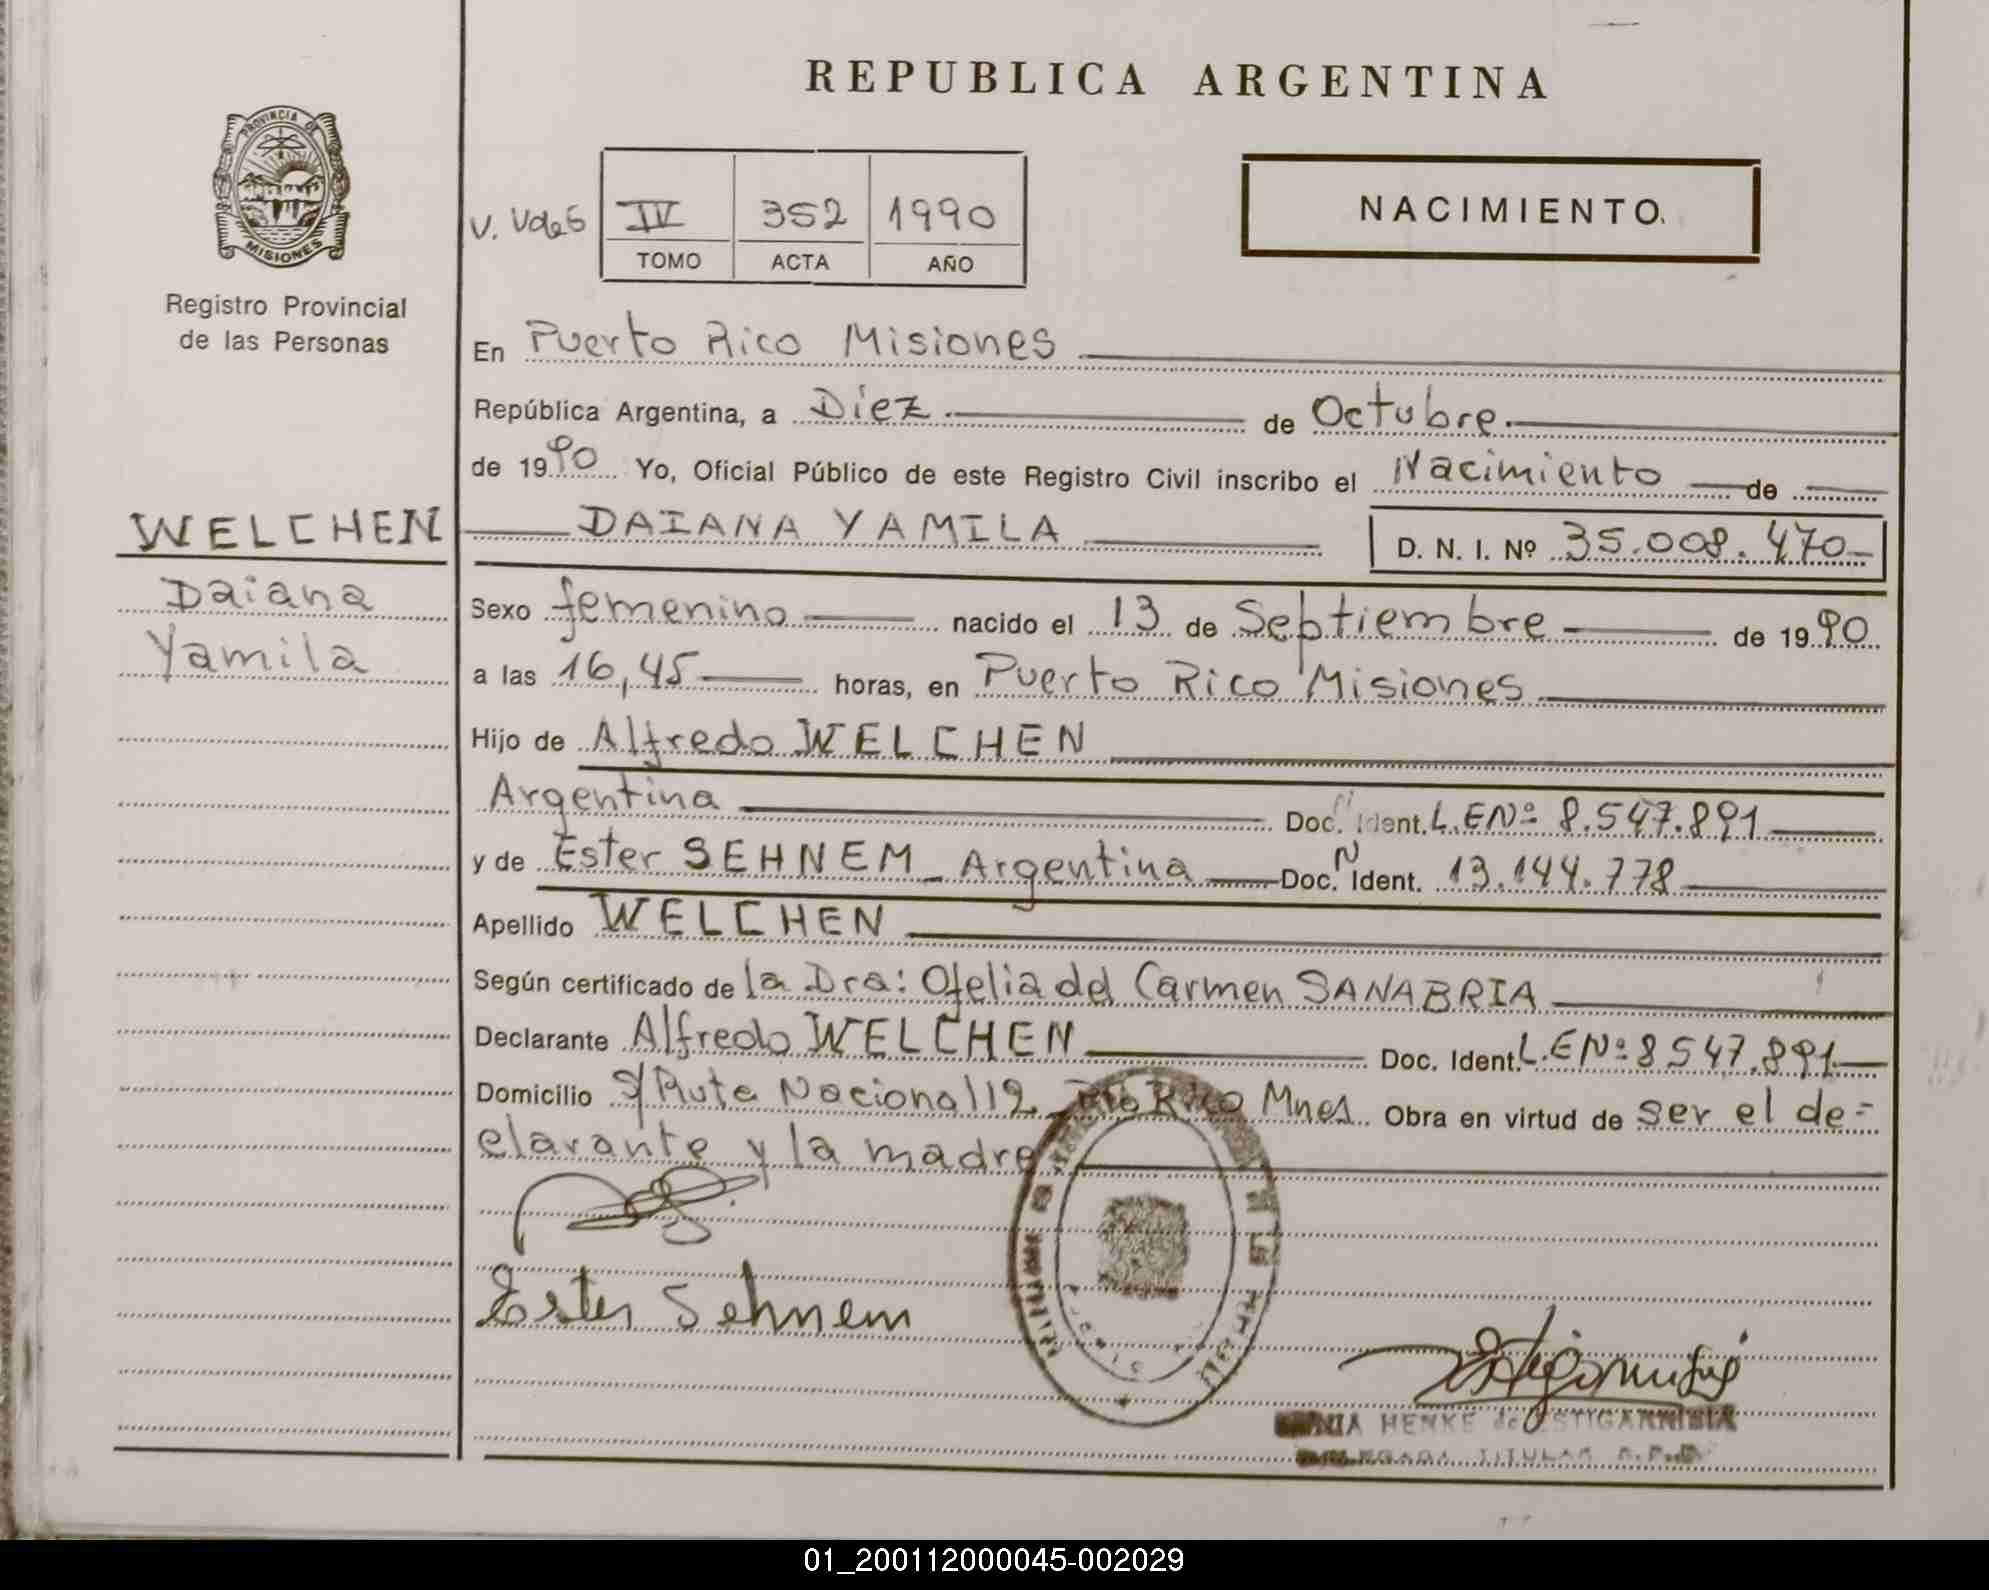 REPUBLICA ARGENTINA
PROVINCIA DE
MISIONES
Registro Provincial
de las Personas
IV 352 1990
TOMO ACTA AÑO
NACIMIENTO.
En Puerto Rico Misiones
República Argentina, a Diez de Octubre
de 1990 Yo, Oficial Público de este Registro Civil inscribo el Nacimiento de
DAIANA YAMILA D. N. I. Nº 35.008.470
WELCHEN
Daiana
Yamila
Sexo femenino nacido el 13 de Septiembre de 1990
a las 16,45 horas, en Puerto Rico Misiones
Hijo de Alfredo WELCHEN
Argentina Doc. Ident. L.E Nº 8.547.891
y de Ester SEHNEM - Argentina Doc. N Ident. 13.144.778
Apellido WELCHEN
Según certificado de la Dra: Ofelia del Carmen SANABRIA
Declarante Alfredo WELCHEN Doc. Ident. L.E Nº 8547.891
Domicilio s/ Ruta Nacional 12 Pto Rico Mnes. Obra en virtud de ser el de=
clarante y la madre
Ester Sehnem
HENKE de ESTIGARRIBIA
DELEGADA TITULAR R.P.P.
01_200112000045-002029